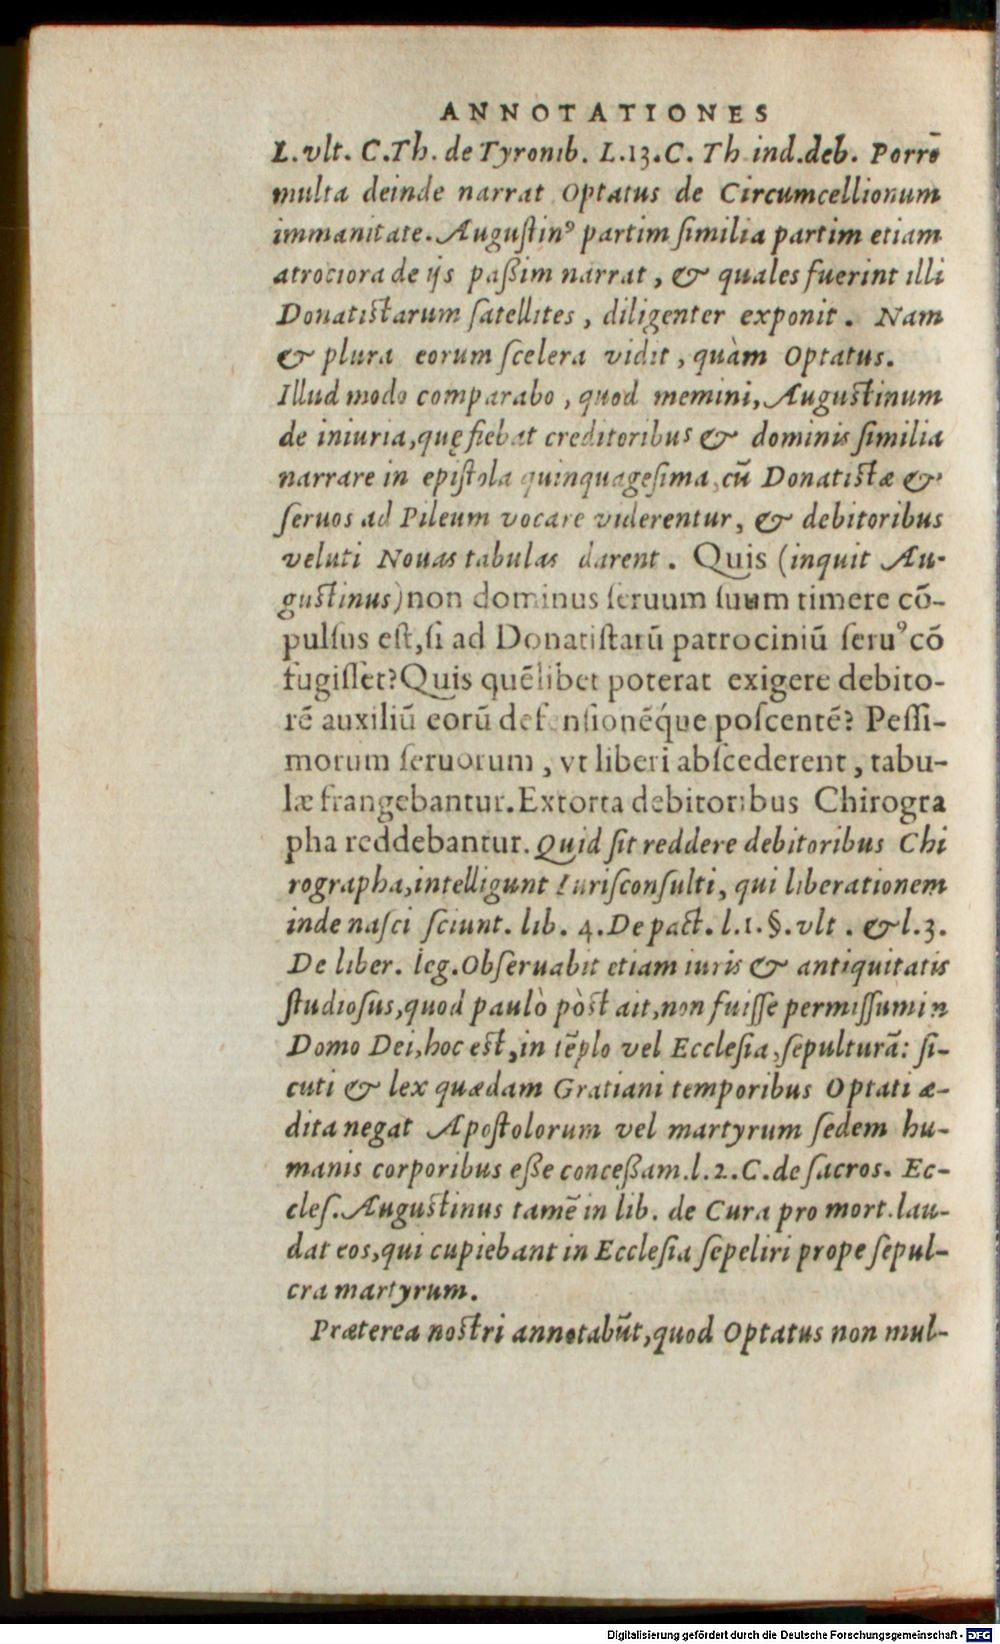 ANNOTATIONES
L. vlt. C.Th. de Tyronib. L.13.C. Th ind.deb. Porrō
multa deinde narrat Optatus de Circumcellionum
immanitate. Augustinꝰ partim ſimilia partim etiam
atrociora de ijs paßim narrat, & quales fuerint illi
Donatistarum ſatellites, diligenter exponit. Nam
& plura eorum ſcelera vidit, quàm Optatus.
Illud modo comparabo, quod memini, Augustinum
de iniuria, quę fiebat creditoribus & dominis ſimilia
narrare in epiſtola quinquageſima, cū Donatistæ &
ſeruos ad Pileum vocare viderentur, & debitoribus
veluti Nouas tabulas darent. Quis (inquit Au-
gustinus) non dominus ſeruum ſuum timere cō-
pulſus eſt, ſi ad Donatiſtarū patrociniū ſeruꝰ cō
fugiſſet? Quis quēlibet poterat exigere debito-
rē auxiliū eorū defenſionēq́ue poſcentē? Peſſi-
morum ſeruorum, vt liberi abſcederent, tabu-
læ frangebantur. Extorta debitoribus Chirogra
pha reddebantur. Quid ſit reddere debitoribus Chi
rographa, intelligunt Iuriſconſulti, qui liberationem
inde naſci ſciunt. lib. 4. De pact. l.1.§.vlt. & l.3.
De liber. leg. Obſeruabit etiam iuris & antiquitatis
ſtudioſus, quod paulò pòst ait, non fuiſſe permiſſum in
Domo Dei, hoc est, in tēplo vel Eccleſia, ſepulturā: ſi-
cuti & lex quædam Gratiani temporibus Optati æ-
dita negat Apoſtolorum vel martyrum ſedem hu-
manis corporibus eße conceßam. l.2.C. de ſacros. Ec-
cleſ. Augustinus tamē in lib. de Cura pro mort. lau-
dat eos, qui cupiebant in Eccleſia ſepeliri prope ſepul-
cra martyrum.
Præterea nostri annotabūt, quod Optatus non mul-
Digitalisierung gefördert durch die Deutsche Forschungsgemeinschaft - DFG